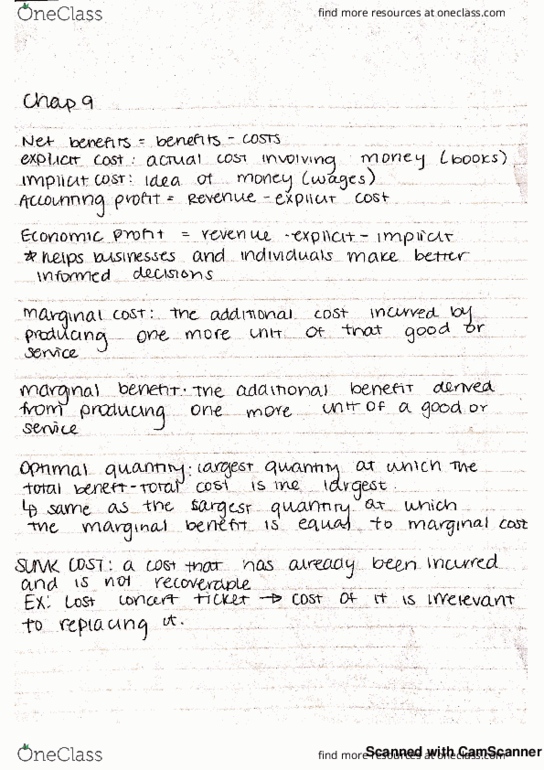 OneClass
find more resources at oneclass.com
Chap 9
Net benefits = benefits - costs
explicit cost: actual cost involving money (books)
implicit cost: idea of money (wages)
Accounting profit = Revenue - explicit cost
Economic Profit = revenue - explicit - implicit
* helps businesses and individuals make better
informed decisions
marginal cost: the additional cost incurred by
producing one more unit of that good or
service
marginal benefit: the additional benefit derived
from producing one more unit of a good or
service
Optimal quantity: largest quantity at which the
total benefit - total cost is the largest.
↳ same as the sargest quantity at which
the marginal benefit is equal to marginal cost
SUNK COST: a cost that has already been incurred
and is not recoverable
EX: Lost concert ticket → cost of it is irrelevant
to replacing it.
OneClass
find more resources at oneclass.com
Scanned with CamScanner